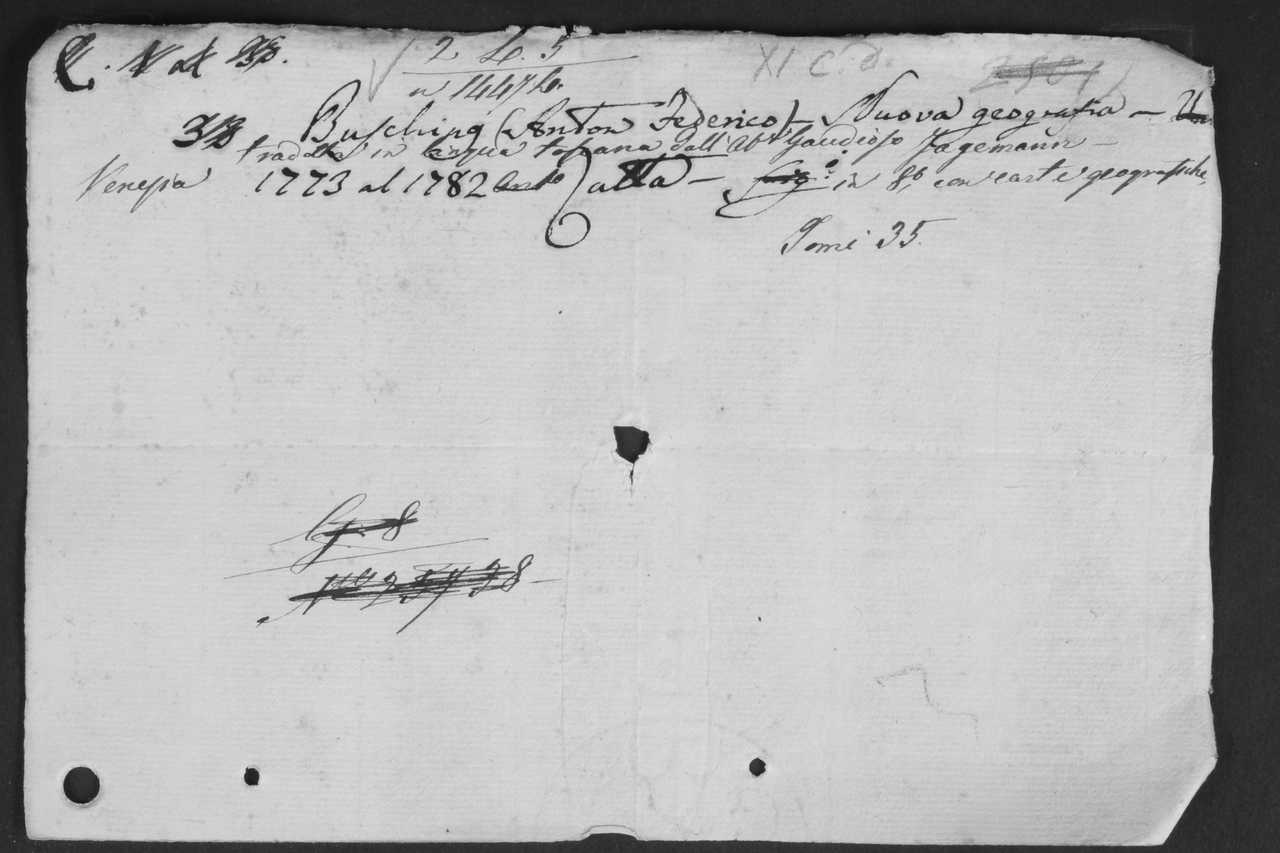 2 L. 5
XI C. d.
n 14476.
Busching (Anton Federico) – Nuova geografia –
tradotta in lingua toscana dall'Ab.e Gaudioso Jagemann –
Venezia 1773 al 1782 Ant.o Zatta – in 8.o con carte geografiche,
Tomi 35.
8